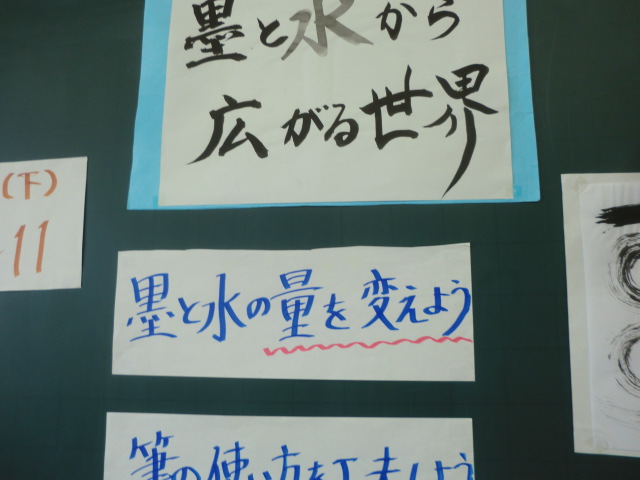 墨と水から
広がる世界
(下)
11
墨と水の量を変えよう
筆の使い方を工夫しよう